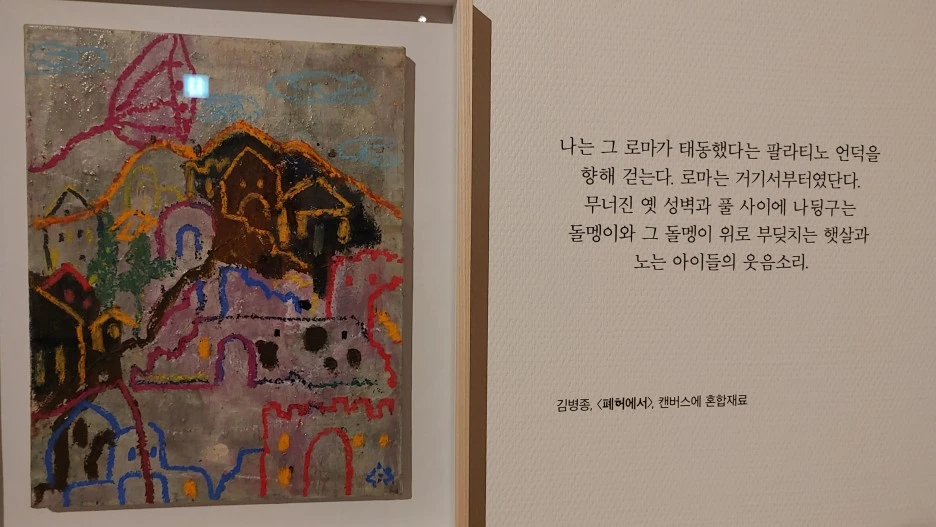 나는 그 로마가 태동했다는 팔라티노 언덕을
향해 걷는다. 로마는 거기서부터였단다.
무너진 옛 성벽과 풀 사이에 나뒹구는
돌멩이와 그 돌멩이 위로 부딪치는 햇살과
노는 아이들의 웃음소리.
김병종, <폐허에서>, 캔버스에 혼합재료